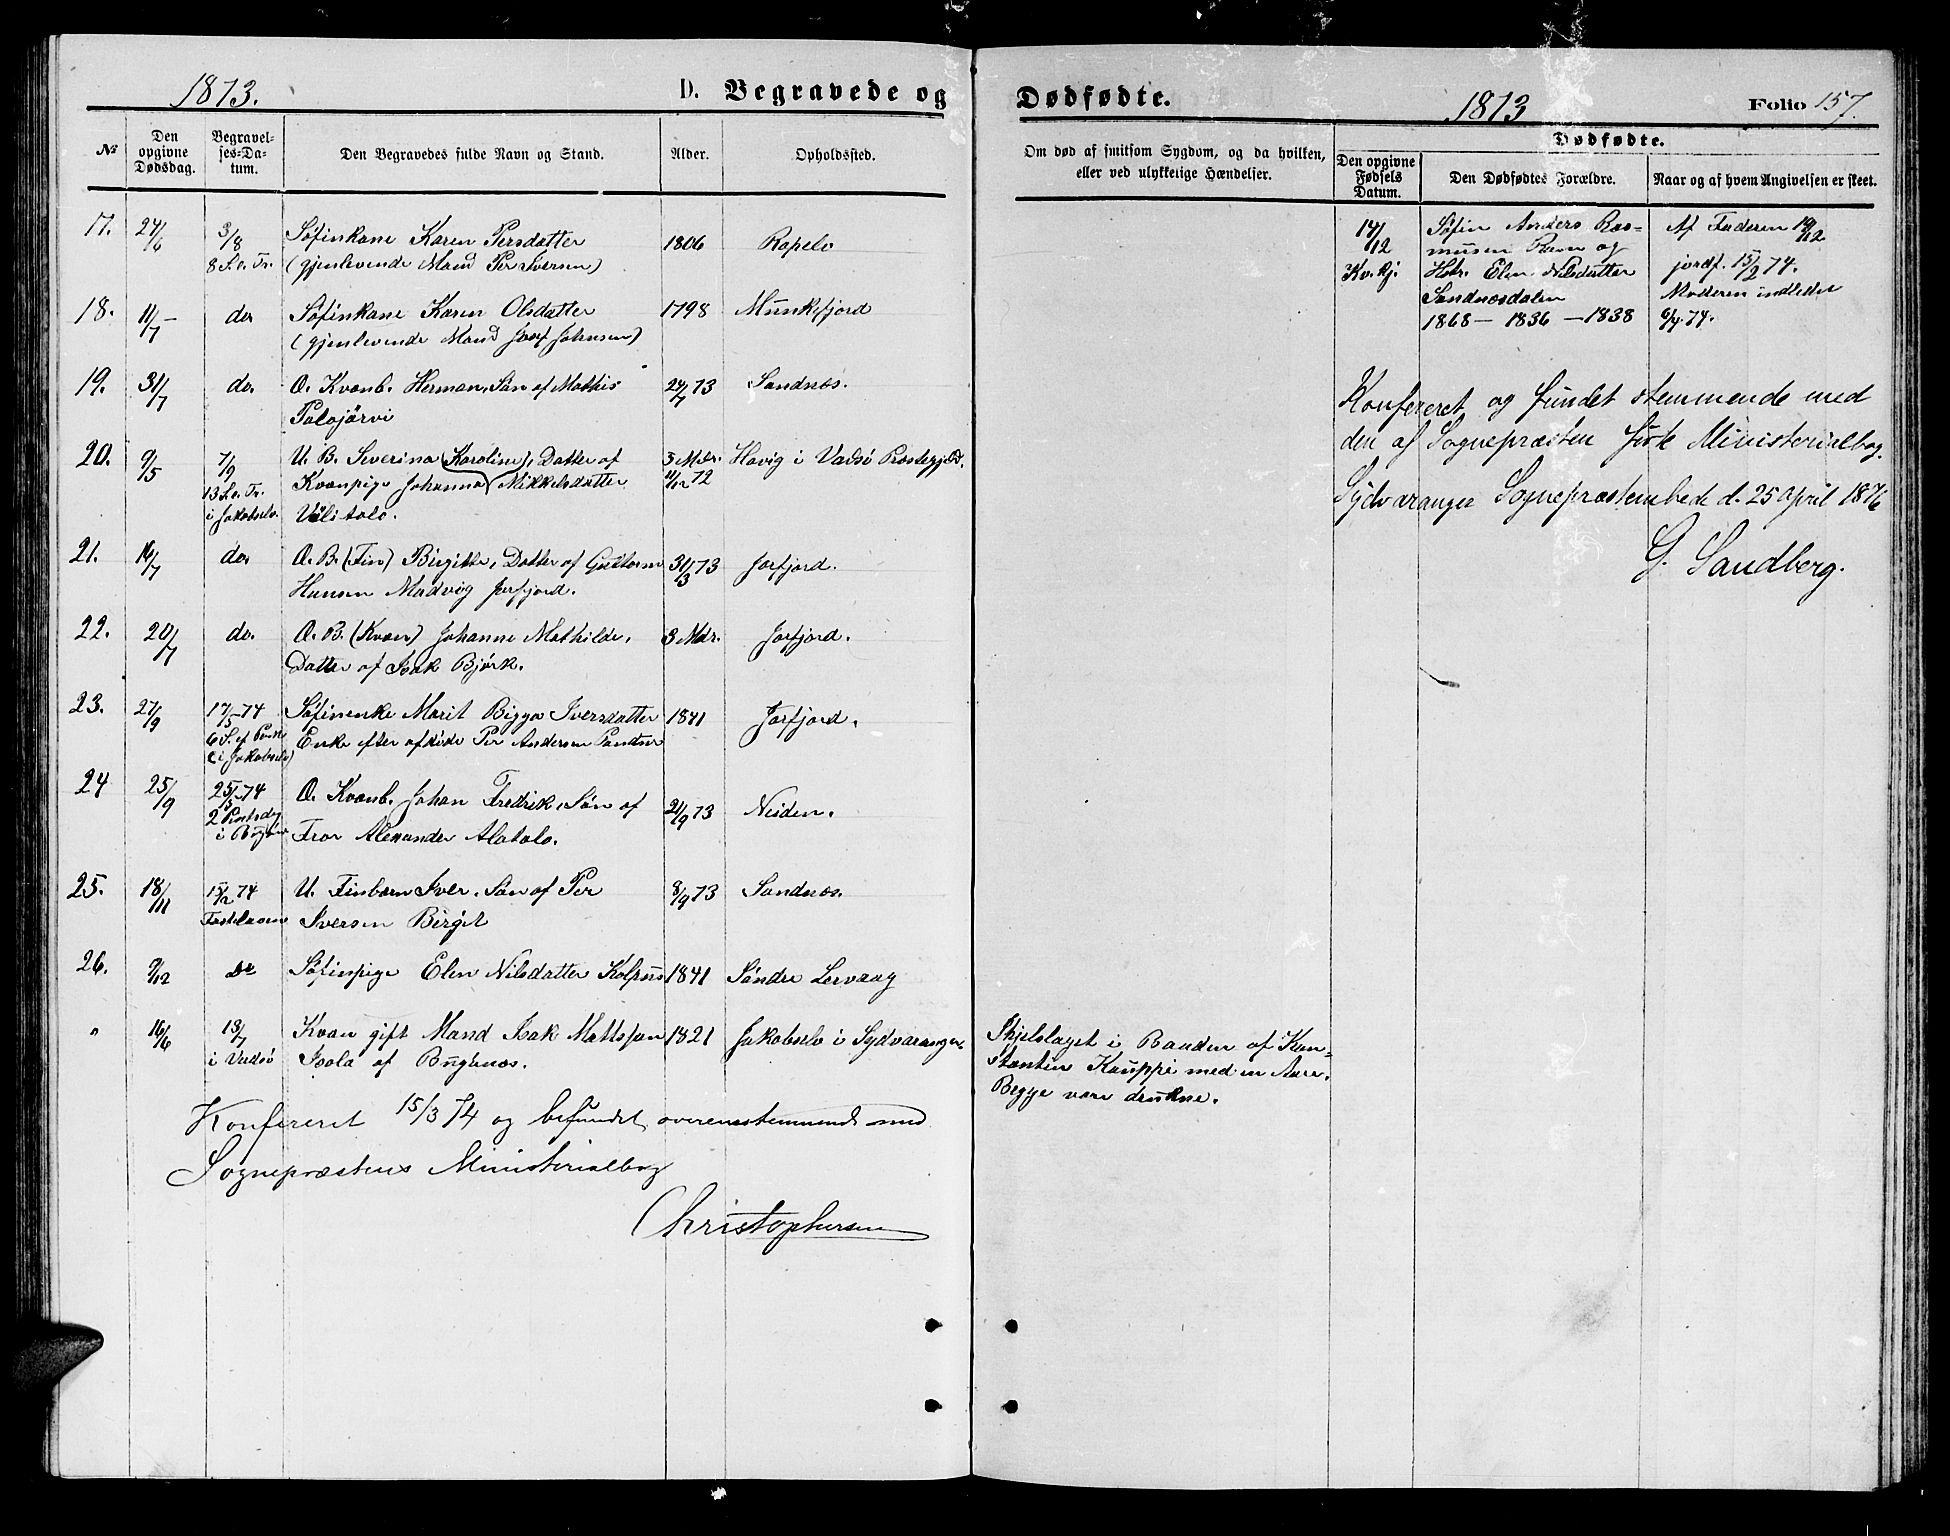 1873.
D. Begravede og
№
Den opgivne Dødsdag.
Begravel-ses-Da-tum.
Den Begravedes fulde Navn og Stand.
Alder.
Opholdssted.
17. 24/6 3/8 Söfinkone Karen Persdatter 1806 Ropelv
8 S. e. Tr. (gjenlevende Mand Per Iversen)
18. 11/7 do Söfinkone Karen Olsdatter 1798 Munkefjord
(gjenlevende Mand Josef Johnsen)
19. 31/7 do. Æ. Kvænb. Herman, Sön af Mathis 24/7 73 Sandnæs.
Palojärvi
20. 9/5 7/9 U. B. Severina (Karoline), Datter af 3 Mdr. Havig i Vadsö Præstegjæld.
13 S. e. Tr. Kvænpige Johanna Mikkelsdatter 11/12 72
i Jakobselv. Ülitalo.
21. 16/7 do. Æ. B. (Fin) Birgitte, Datter af Guttorm 31/3 73 Jarfjord.
Hansen Madvig Jarfjord.
22. 20/7 do. Æ. B. (Kvæn) Johanne Mathilde, 3 Mdr. Jarfjord.
Datter af Isak Björk.
23. 27/9 17/5 74 Söfinenke Marit Biggo Iversdatter 1841 Jarfjord.
6 S. ef. Paaske Enke efter afdöde Per Andersen
i Jakobselv)
24 25/9 25/5 74 Æ. Kvænb. Johan Fredrik, Sön af 21/9 73 Neiden.
2 Pintsedag Fror Alexander Alatalo.
i Bugönæs
25. 18/11 15/2 74 U. Finbarn Iver, Sön af Per 8/9 73 Sandnæs.
Fastelavn Iversen Birget
26. 9/12 do Söfinpige Elen Nilsdatter Kolpus 1841 Söndre Lervaag
" 16/6 13/7 Kvæn gift Mand Isak Mattsson 1821 Jakobselv i Sydvaranger
i Vadsö Isola af Bugönæs.
Konfereret 15/3 74 og befundet overensstemmende med
Sognepræstens Ministerialbog
Christophersen
Dødfødte.
1873
Folio 157.
Om død af smitsom Sygdom, og da hvilken,
eller ved ulykkelige Hændelser.
Dødfødte.
Den opgivne Fødsels Datum.
Den Dødfødtes Forældre.
Naar og af hvem Angivelsen er skeet.
14/12 Söfin Anders Ras- Af Faderen 19/12
musen Ravn og
Kv. kj. Hstr. Elen Nilsdatter jordf. 15/2 74.
Sandnæsdalen Moderen indledet
1868 — 1836 — 1838 6/4 74.
Konfereret og fundet stemmende med
den af Sognepræsten førte Ministerialbog.
Sydvaranger Sognepræstembede d. 25 April 1876
G. Sandberg.
Ihjelslaget i Baaden af Kon-
stantin Kauppi med en Aare.
Begge vare drukne.